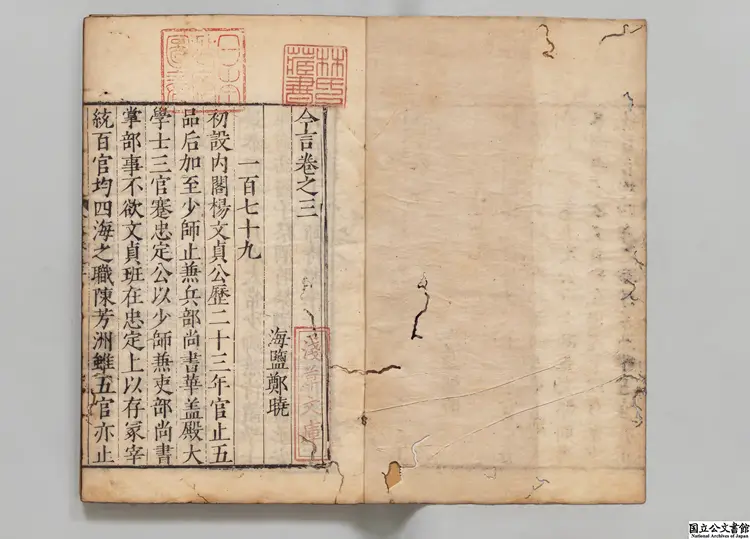 今言卷之三
海鹽鄭曉
一百七十九
初設内閣楊文貞公歷二十三年官止五
品后加至少師止兼兵部尚書華盖殿大
學士三官蹇忠定公以少師兼吏部尚書
掌部事不欲文貞班在忠定上以存冢宰
統百官均四海之職陳芳洲雖五官亦止
林氏藏書
淺草文庫
国立公文書館
National Archives of Japan